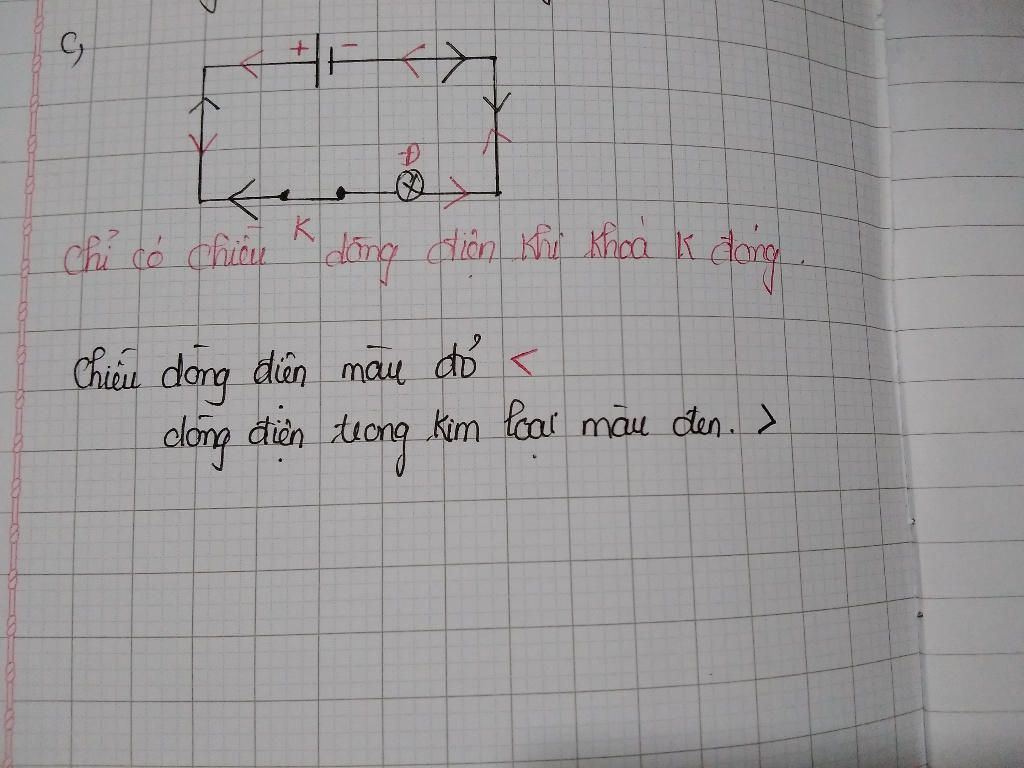 c,
+ -
Đ
K
Chỉ có chiều dòng điện khi khoá K đóng.
Chiều dòng điện màu đỏ <
dòng điện trong kim loại màu đen. >